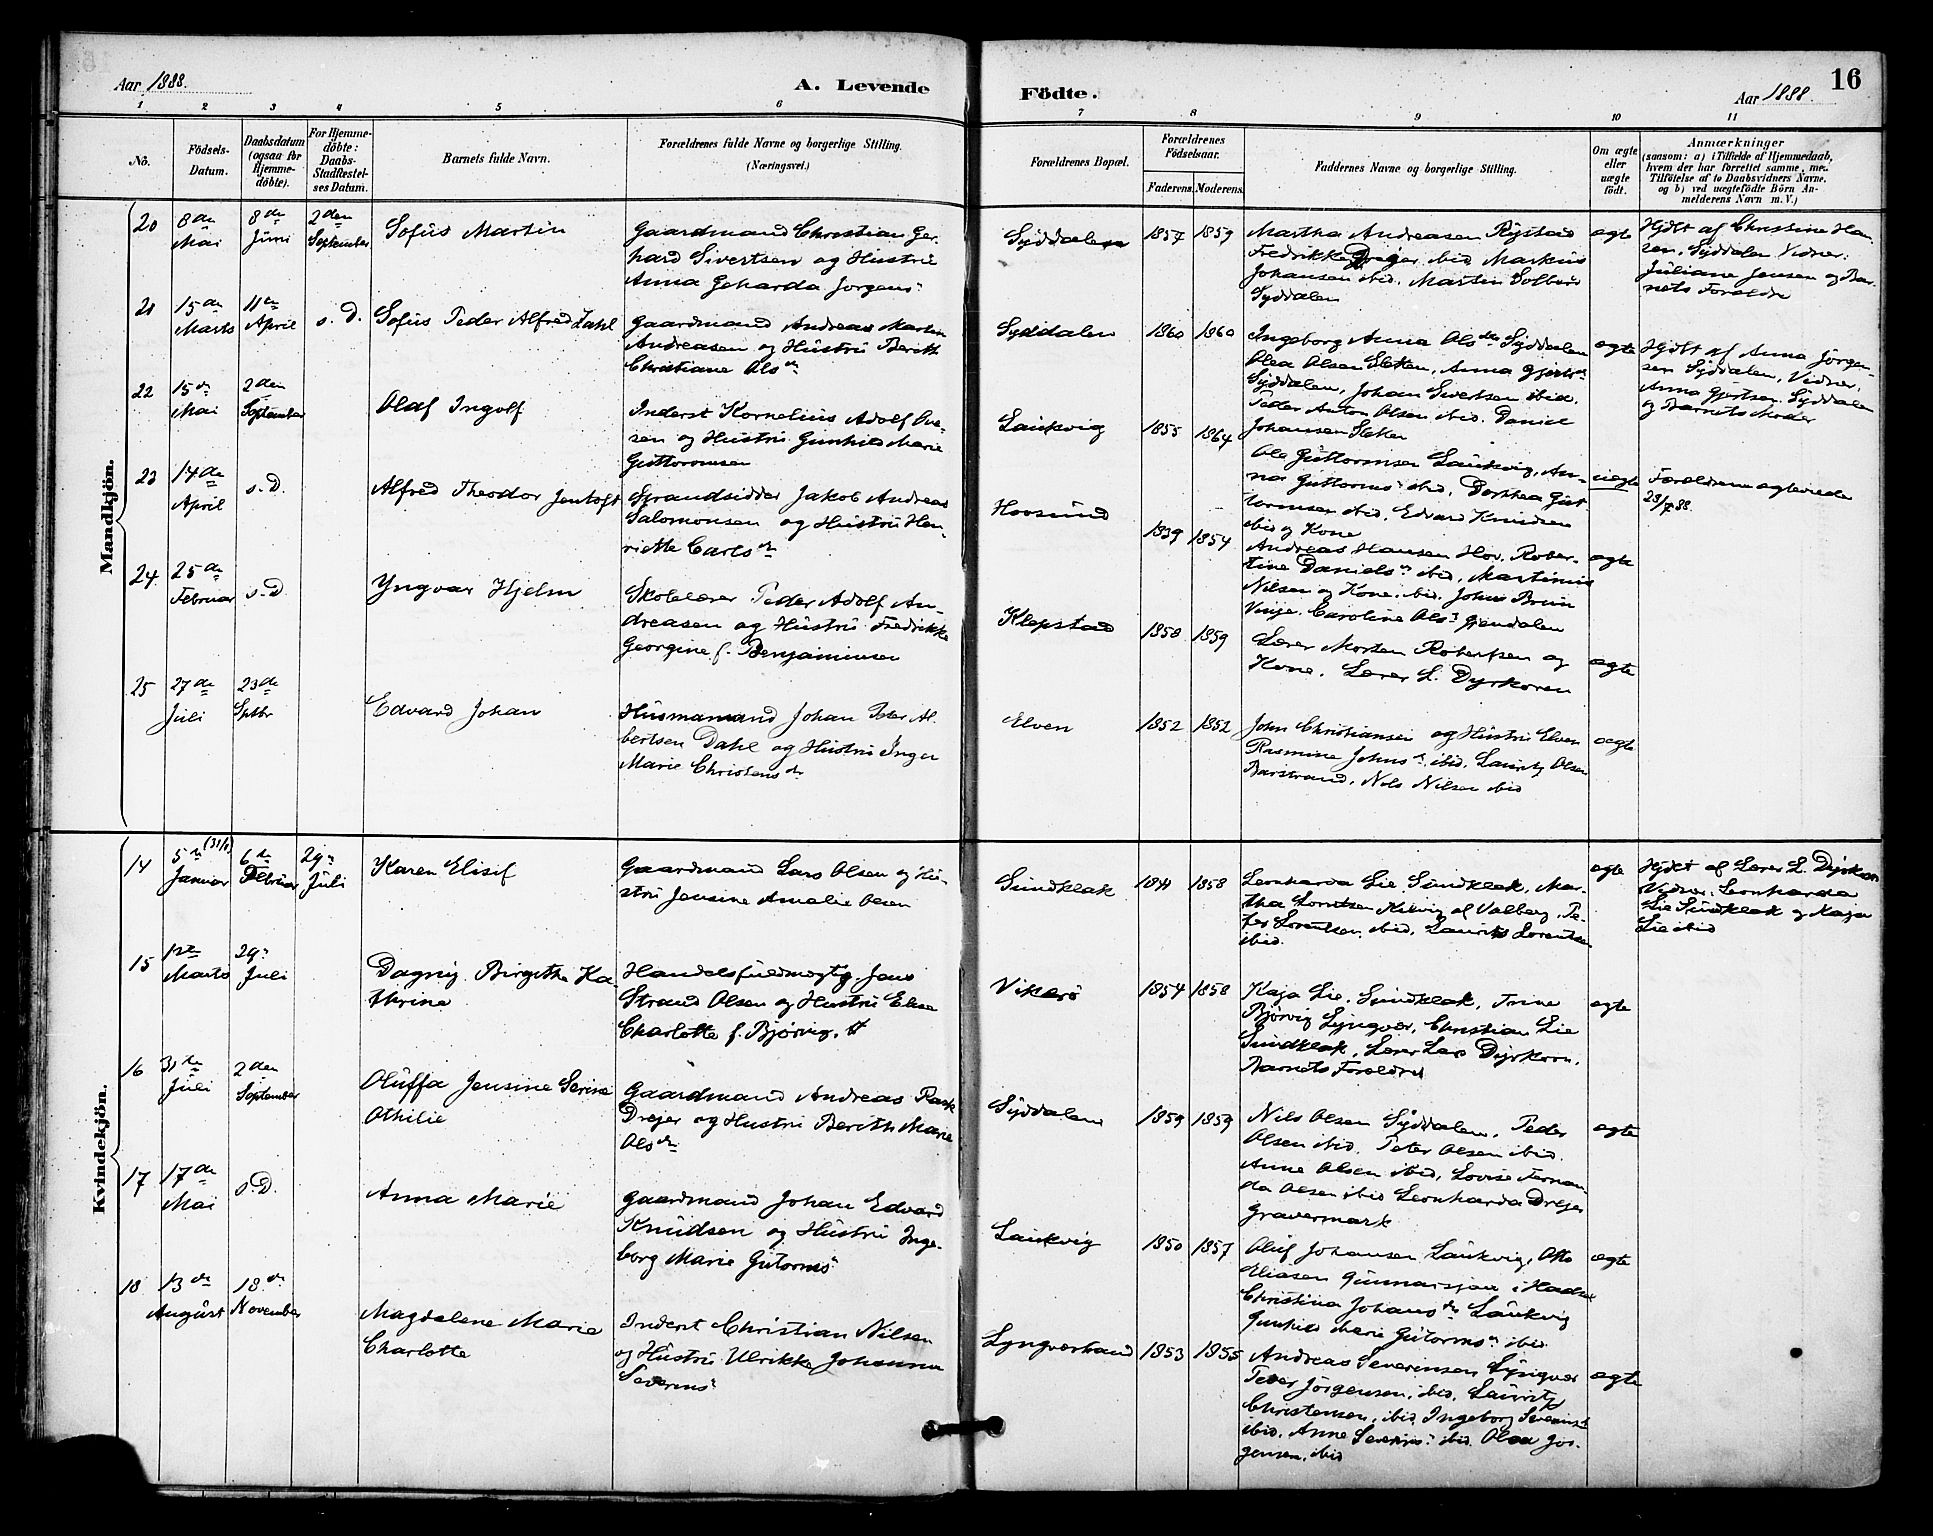 Aar 1888.
A. Levende
Födte.
Aar 1888.
16
1 2 3 4 5 6 7 8 9 10 11
No.
Födsels-
Datum.
Daabsdatum
(ogsaa for
Hjemme-
döbte).
For Hjemme-
döbte:
Daabs-
Stadfæstel-
ses Datum.
Barnets fulde Navn.
Forældrenes fulde Navne og borgerlige Stilling.
(Næringsvei.)
Forældrenes Bopæl.
Forældrenes
Födselsaar.
Faderens. Moderens.
Faddernes Navne og borgerlige Stilling.
Om ægte
eller
uægte
födt.
Anmærkninger
(saasom: a) i Tilfælde af Hjemmedaab,
hvem der har forrettet samme, med
Tilföielse af to Daabsvidners Navne,
og b) ved uægtefödte Börn An-
melderens Navn m. V.)
Mandkjön.
20
8de
Mai
8de
Juni
2den
September
Sofus Martin
Gaardmand Christian Ger-
hard Sivertsen og Hustru
Anna Geharda Jorgens
Syddalen
1857 1859
Martha Andreasen Rystad
Fredrikke Dreyer ibid Markus
Johansen ibid. Martin Solberg
Syddalen
ægte
Hjdt af Christine Han-
sen, Syddalen Vidner:
Juliane Jensen og Bar-
nets Forældre
21
15de
Marts
11te
April
s. D.
Sofus Peder Alfred Zahl
Gaardmand Andreas Martin
Andreasen og Hustru Berith
Christiane Olsdr
Syddalen
1860 1860
Ingeborg Anna Olsdtr Syddalen
Olea Olsen Sletten, Anna Gjertsdr
Syddalen, Johan Sivertsen ibid.
Peder Anton Olsen ibid. Daniel
Johansen Sletten
ægte
Hjdt af Anna Jörgen-
sen Syddalen, Vidner,
Anna Gjertsen, Syddalen
og Barnets Moder
22
15de
Mai
2den
September
Olaf Ingolf
Inderst Kornelius Adolf Ove-
sen og Hustru Gunhild Marie
Guttormsen
Laukvig
1855 1864
Ole Guttormsen Laukvig, An-
na Guttorms ibid, Dorthea Gut
tormsen ibid. Edvard Knudsen
ibid og Kone
uægte
Forældrene ægteviede
23/7 88.
23
14de
April
s. D.
Alfred Theodor Jentoft
Strandsidder Jakob Andreas
Salomonsen og Hustru Hen-
riette Carlsdr
Hovsund
1839 1854
Andreas Hansen Hov. Rober-
tine Daniels ibid, Martinus
Nilsen og Kone ibid. Johns Brun
Vinje. Caroline Ols Gjendalen
ægte
24
25de
Februar
s. D.
Yngvar Hjelm
Skolelærer Peder Adolf An-
dreasen og Hustru Fredrikke
Georgine f. Benjaminsen
Klepstad
1858 1859
Lærer Morten Robertsen og
Kone. Lærer L. Dyrkoren
ægte
25
27de
Juli
23de
Sptbr
Edvard Johan
Husmamand Johan Peter Al
bertsen Dahl og Hustru Inger
Marie Christensdr
Elven
1852 1852
John Christiansen og Hustru Elven
Rasmine Johns ibid. Lauritz Olsen
Barstrand, Nils Nilsen ibid
ægte
Kvindekjön.
14
5te (31/1)
Januar
6te
Februar
29
Juli
Karen Elisif
Gaardmand Lars Olsen og Hu-
stru Jensine Amalie Olsen
Sundklak
1858
Leonharda Lie Sundklak, Mar-
tha Lorntsen Kilvig af Valberg, Pe-
ter Lorentsen ibid, Laurits Lorentsen
ibid.
ægte
Hjdt af Lærer L. Dyrkoren
Vidner. Leonharda
Lie Sundklak og Kaja
Lie ibid
15
1ste
Marts
29
Juli
Dagny Birgitha Ka
thrine
Handelsfuldmægtg. Jens
Strand Olsen og Hustru Elise
Charlotte f. Bjørvig.
Vikerö
1854 1858
Kaja Lie. Sundklak, Trine
Bjørvig Lyngvær, Christian Lie
Sundklak. Lærer Lars Dyrkorn.
Barnets Forældre
ægte
16
31te
Juli
2den
September
Oluffa Jensine Serine
Othilie
Gaardmand Andreas Rask
Drejer og Hustru Berith Marie
Olsdr
Syddalen
1859 1859
Nils Olsen Syddalen. Peder
Olsen ibid. Peter Olsen ibid.
Anne Olsen ibid, Lovise Fernan-
da Olsen ibid Leonharda Drejer
Gravermark
ægte
17
17de
Mai
s. D.
Anna Marie
Gaardmand Johan Edvard
Knudsen og Hustru Inge-
borg Marie Gutorms
Laukvig
1850 1857
Oluf Johansen Laukvig, Otto
Eliasen Gunnarsjau i Hadsel
Christina Johansdr Laukvig
Gunhild Marie Gutorms ibid
ægte
18
13de
August
18de
November
Magdalene Marie
Charlotte
Inderst Christian Nilsen
og Hustru Ulrikke Johanna
Severins
Lyngverstrand
1853 1855
Andreas Severinsen Lyngvær
Peder Jörgensen, ibid, Lauritz
Christensen, ibid, Ingeborg Severins
ibid, Anne Severins ibid Olea Jör-
gensen, ibid
ægte